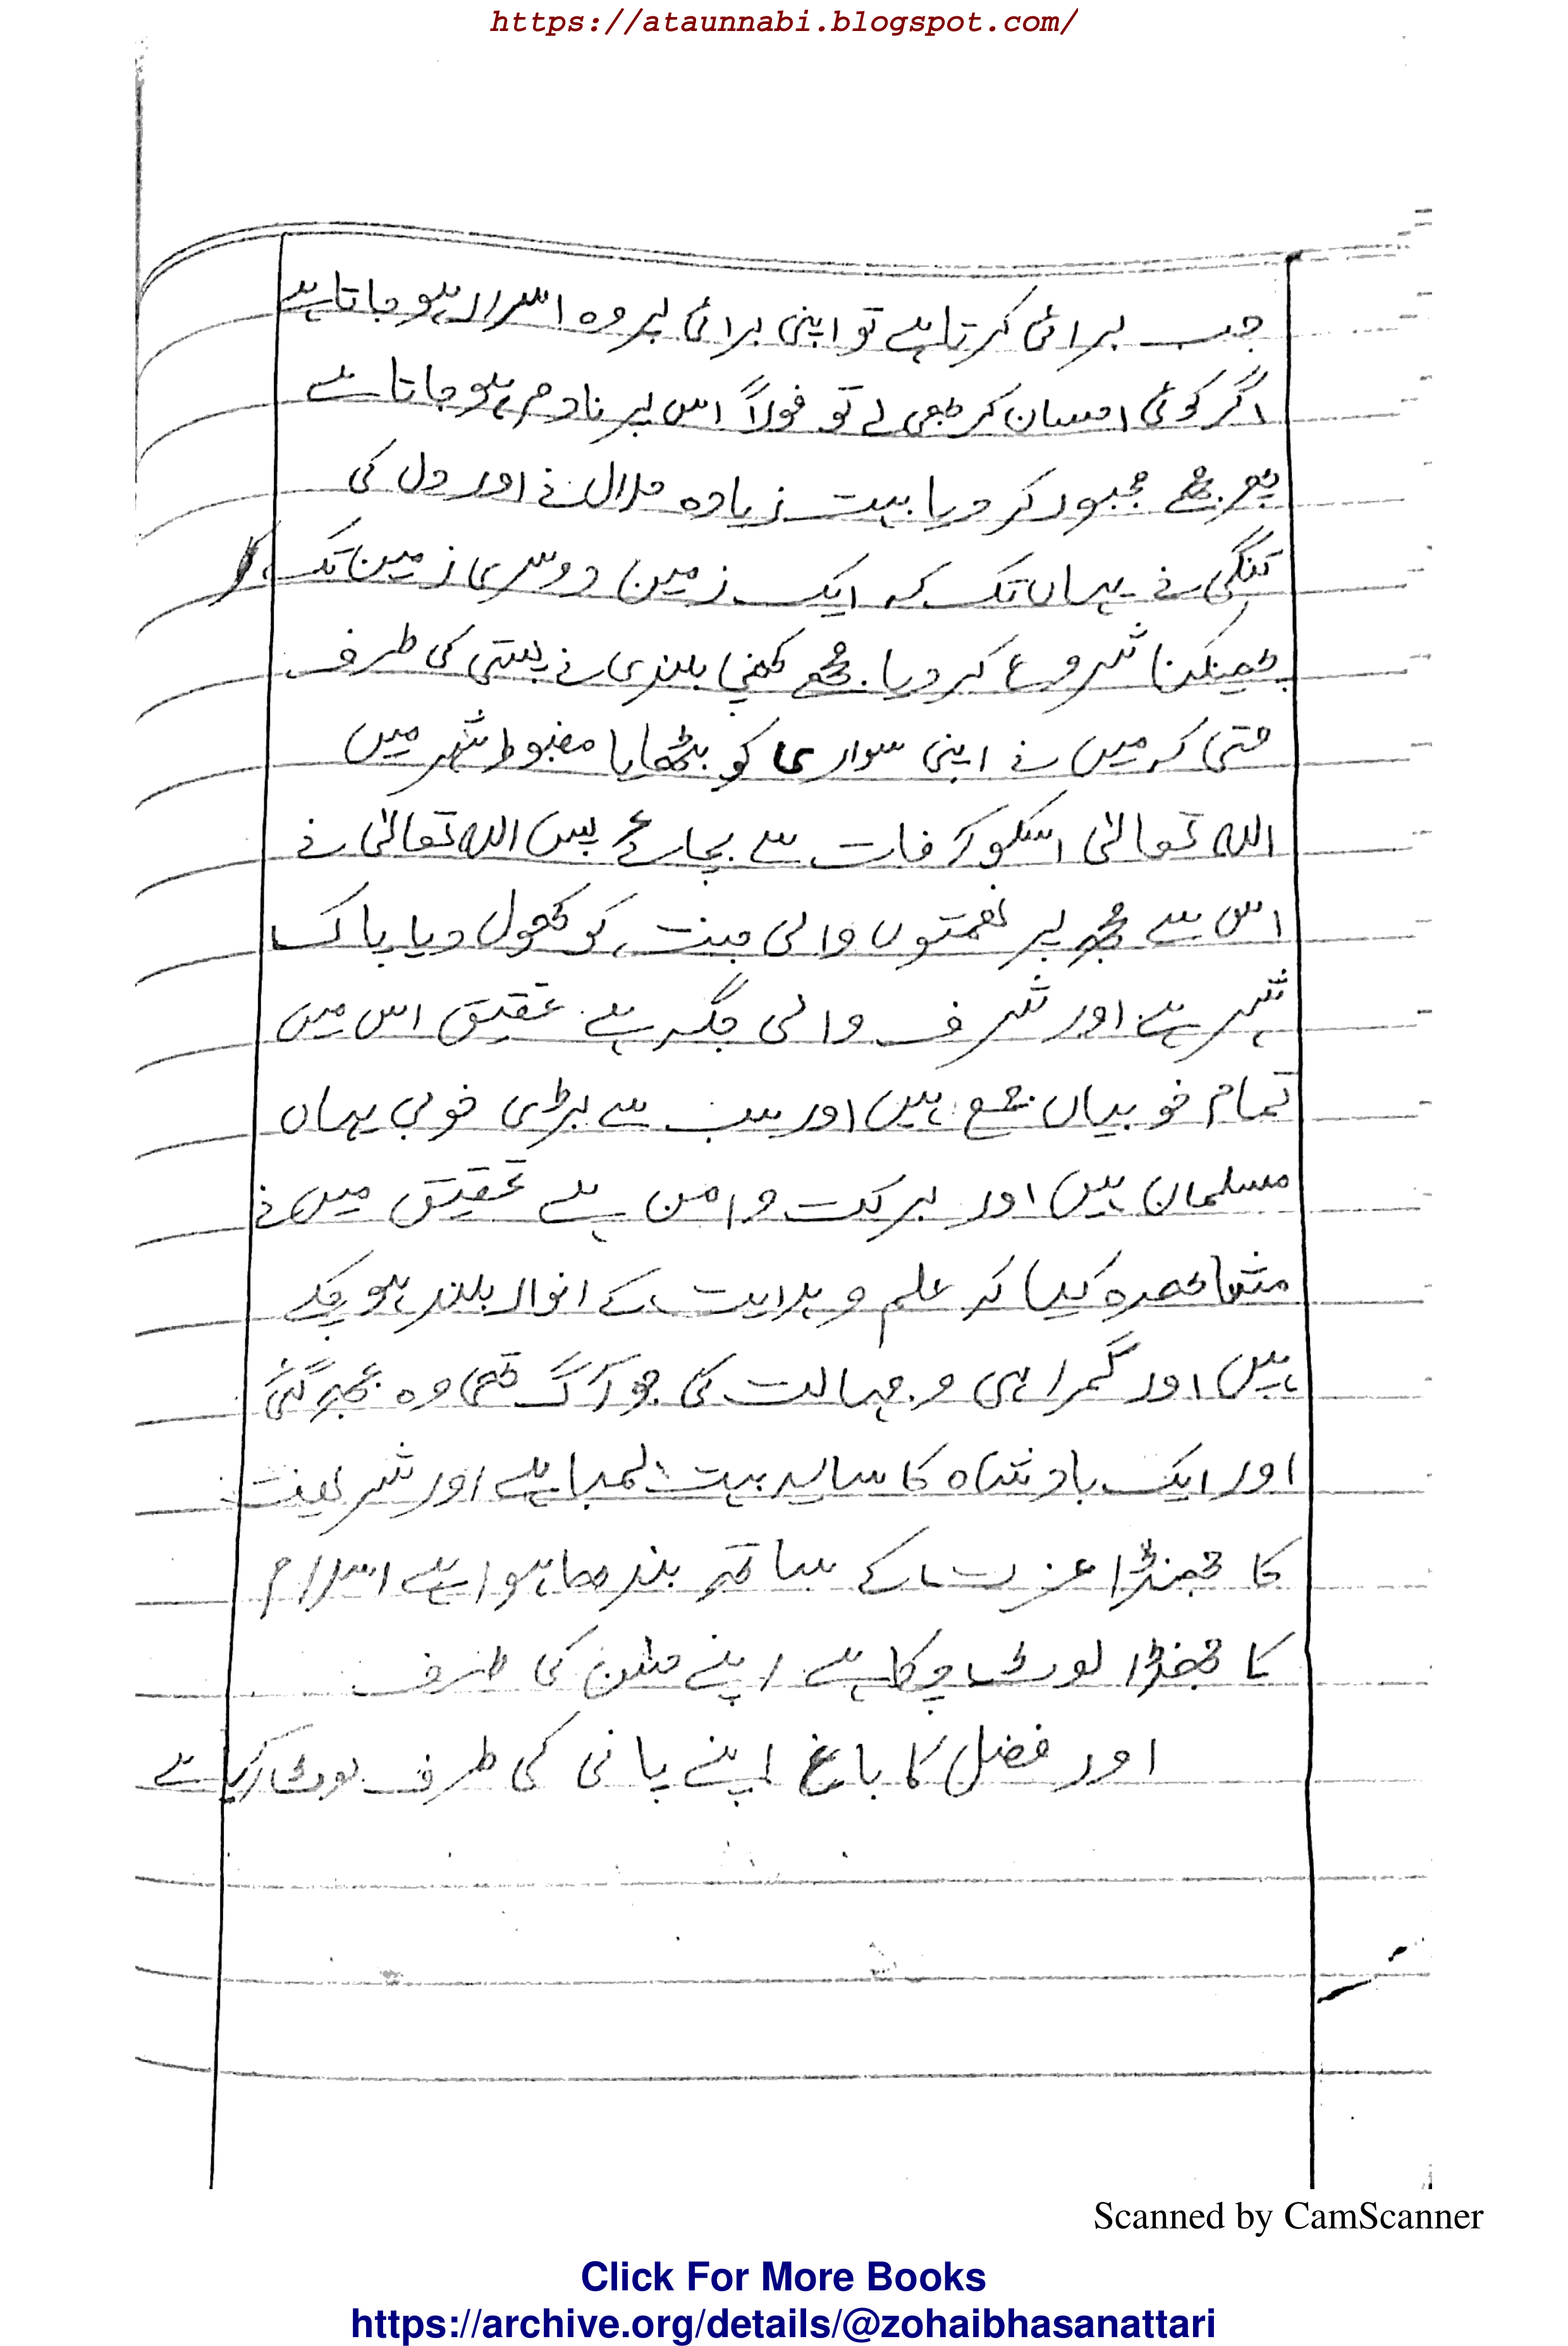 https://ataunnabi.blogspot.com/
جب برائی کرتا ہے تو اپنی برائی پر وہ اسرار ہو جاتا ہے
اگر کوئی احسان کر بھی لے تو فوراً اس پر نادم ہو جاتا ہے
پھر مجھے مجبور کر دیا بہت زیادہ ملال نے اور دل کی
تنگی نے یہاں تک کہ ایک زمین دوسری زمین تک
پھینکنا شروع کر دیا۔ مجھے کھینچا بلندی نے پستی کی طرف
حتی کہ میں نے اپنی سواری کو بٹھایا مضبوط شہر میں
اللہ تعالیٰ اسکو آفات سے بچائے پس اللہ تعالیٰ نے
اس سے مجھ پر نعمتوں والی جنت کو کھول دیا پاک
شہر ہے اور شرف والی جگہ ہے۔ تحقیق اس میں
تمام خوبیاں جمع ہیں اور سب سے بڑی خوبی یہاں
مسلمان ہیں اور برکت و امن ہے تحقیق میں نے
مشاھدہ کیا کہ علم و ہدایت کے انوار بلند ہو چکے
ہیں اور گمراہی و جہالت کی جو آگ تھی وہ بجھ گئی
اور ایک بادشاہ کا سایہ بہت لمبا ہے اور شریعت
کا جھنڈا عزت کے ساتھ بندھا ہوا ہے اسلام
کا جھنڈا لوٹ چکا ہے اپنے مشن کی طرف
اور فضل کا باغ اپنے پانی کی طرف لوٹ آیا ہے
Scanned by CamScanner
Click For More Books
https://archive.org/details/@zohaibhasanattari